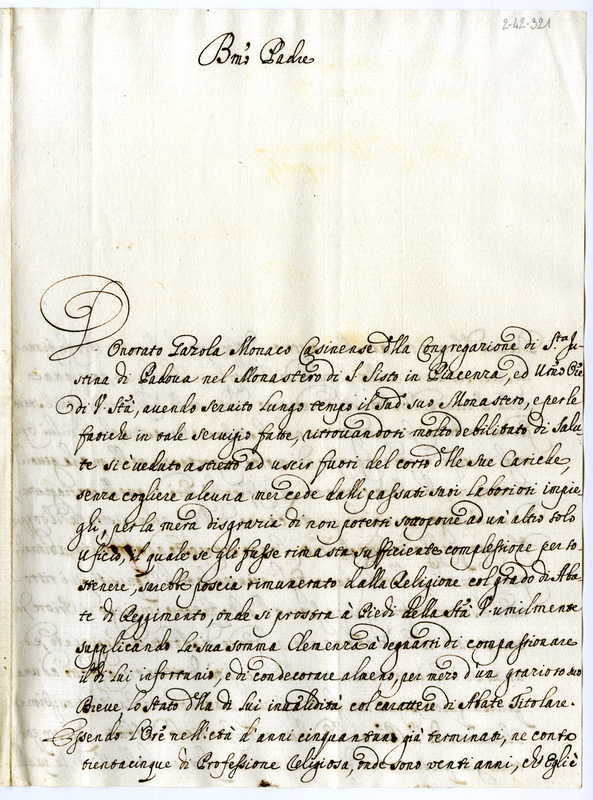 2-42-321
Bmo Padre
D. Onorato Gazola Monaco Casinense dlla Congregazione di Sta Ju-
stina di Padova nel Monastero di S Sisto in Piacenza, ed Umo Ore
di V. Stà, avendo servito lungo tempo il sud suo Monastero, e per le
fatiche in tale servigio fatte, ritrovandosi molto debilitato di salu-
te si è veduto astretto ad uscir fuori del corso dlle sue Cariche,
senza cogliere alcuna mercede dalli passati suoi laboriosi impie-
ghi, per la mera disgrazia di non potersi sottoporre ad un' altro solo
Uficio, il quale se gli fosse rimasta sufficiente complessione per so-
stenere, sarebbe poscia rimunerato dalla Religione col grado di Aba-
te di Reggimento, onde si prostra à Piedi della Stà V. umilmente
supplicando la sua somma Clemenza à degnarsi di compassionare
il di lui infortunio, e di condecorare almeno, per mezo d'un grazioso suo
Breve lo stato dlla di lui invalidità col carattere di Abate Titolare.
Essendo l'Ore nell'età d'anni cinquantuno già terminati, ne conta
trentacinque di Professione Religiosa, onde sono venti anni, ch' Egli è